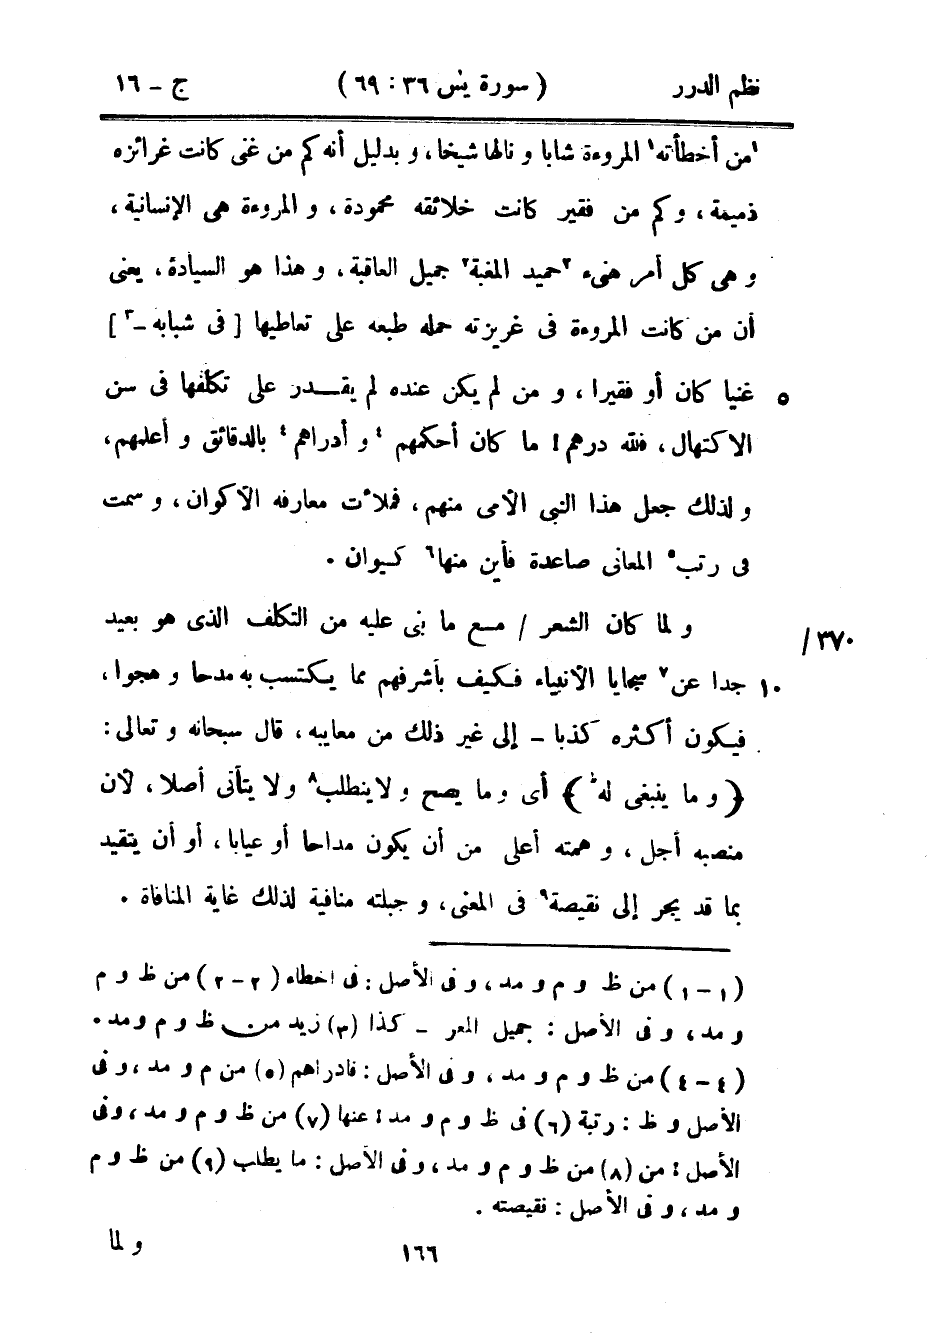 نظم الدرر ( سورة يٰس ٣٦ : ٦٩ ) ج – ١٦
١من أخطأته١ المروءة شابا و نالها شيخا، و بدليل أنه كم من غنى كانت غرائزه
ذميمة، وكم من فقير كانت خلائقه محمودة، و المروءة هى الإنسانية،
و هى كل أمر هنىء ٢حميد المغبة٢ جميل العاقبة، و هذا هو السيادة، يعنى
أن من كانت المروءة فى غريزته حمله طبعه على تعاطيها [ فى شبابه –٣ ]
غنيا كان أو فقيرا، و من لم يكن عنده لم يقـــدر على تكلفها فى سن ٥
الاكتهال، فلله درهم! ما كان أحكمهم ٤ و أدراهم ٤ بالدقائق و أعلمهم،
و لذلك جعل هذا النبى الأمى منهم، فملأت معارفه الأكوان، و سمت
فى رتب٥ المعانى صاعدة فأين منها٦ كـيوان .
و لما كان الشعر / مـع ما بنى عليه من التكلف الذى هو بعيد /٣٧٠
جدا عن٧ سجايا الأنبياء فـكيف بأشرفهم مما يـكتسب به مدحا و هجوا، ١٠
فيكون أكثره كذبا – إلى غير ذلك من معايبه، قال سبحانه و تعالى :
﴿ و ما ينبغى له ؕ ﴾ أى وما يصح ولا ينطلب٨ ولا يتأتى أصلا، لأن
منصبه أجل، و همته أعلى من أن يكون مداحا أو عيابا، أو أن يتقيد
بما قد يجر إلى نقيصة٩ فى المعنى، و جبلته منافية لذلك غاية المنافاة .
(١–١) من ظ و م و مد، و فى الأصل : فى اخطاء (٢–٢) من ظ و م
و مد، و فى الأصل : جميل المعر – كذا (٣) زيد من ظ و م و مد .
(٤–٤) من ظ و م و مد، و فى الأصل : فادراهم (٥) من م و مد، و فى
الأصل و ظ : رتبة (٦) فى ظ و م و مد : عنها (٧) من ظ و م و مد، و فى
الأصل : من (٨) من ظ و م و مد، و فى الأصل : ما يطلب (٩) من ظ و م
و مد، و فى الأصل : نقيصته .
و لما
١٦٦